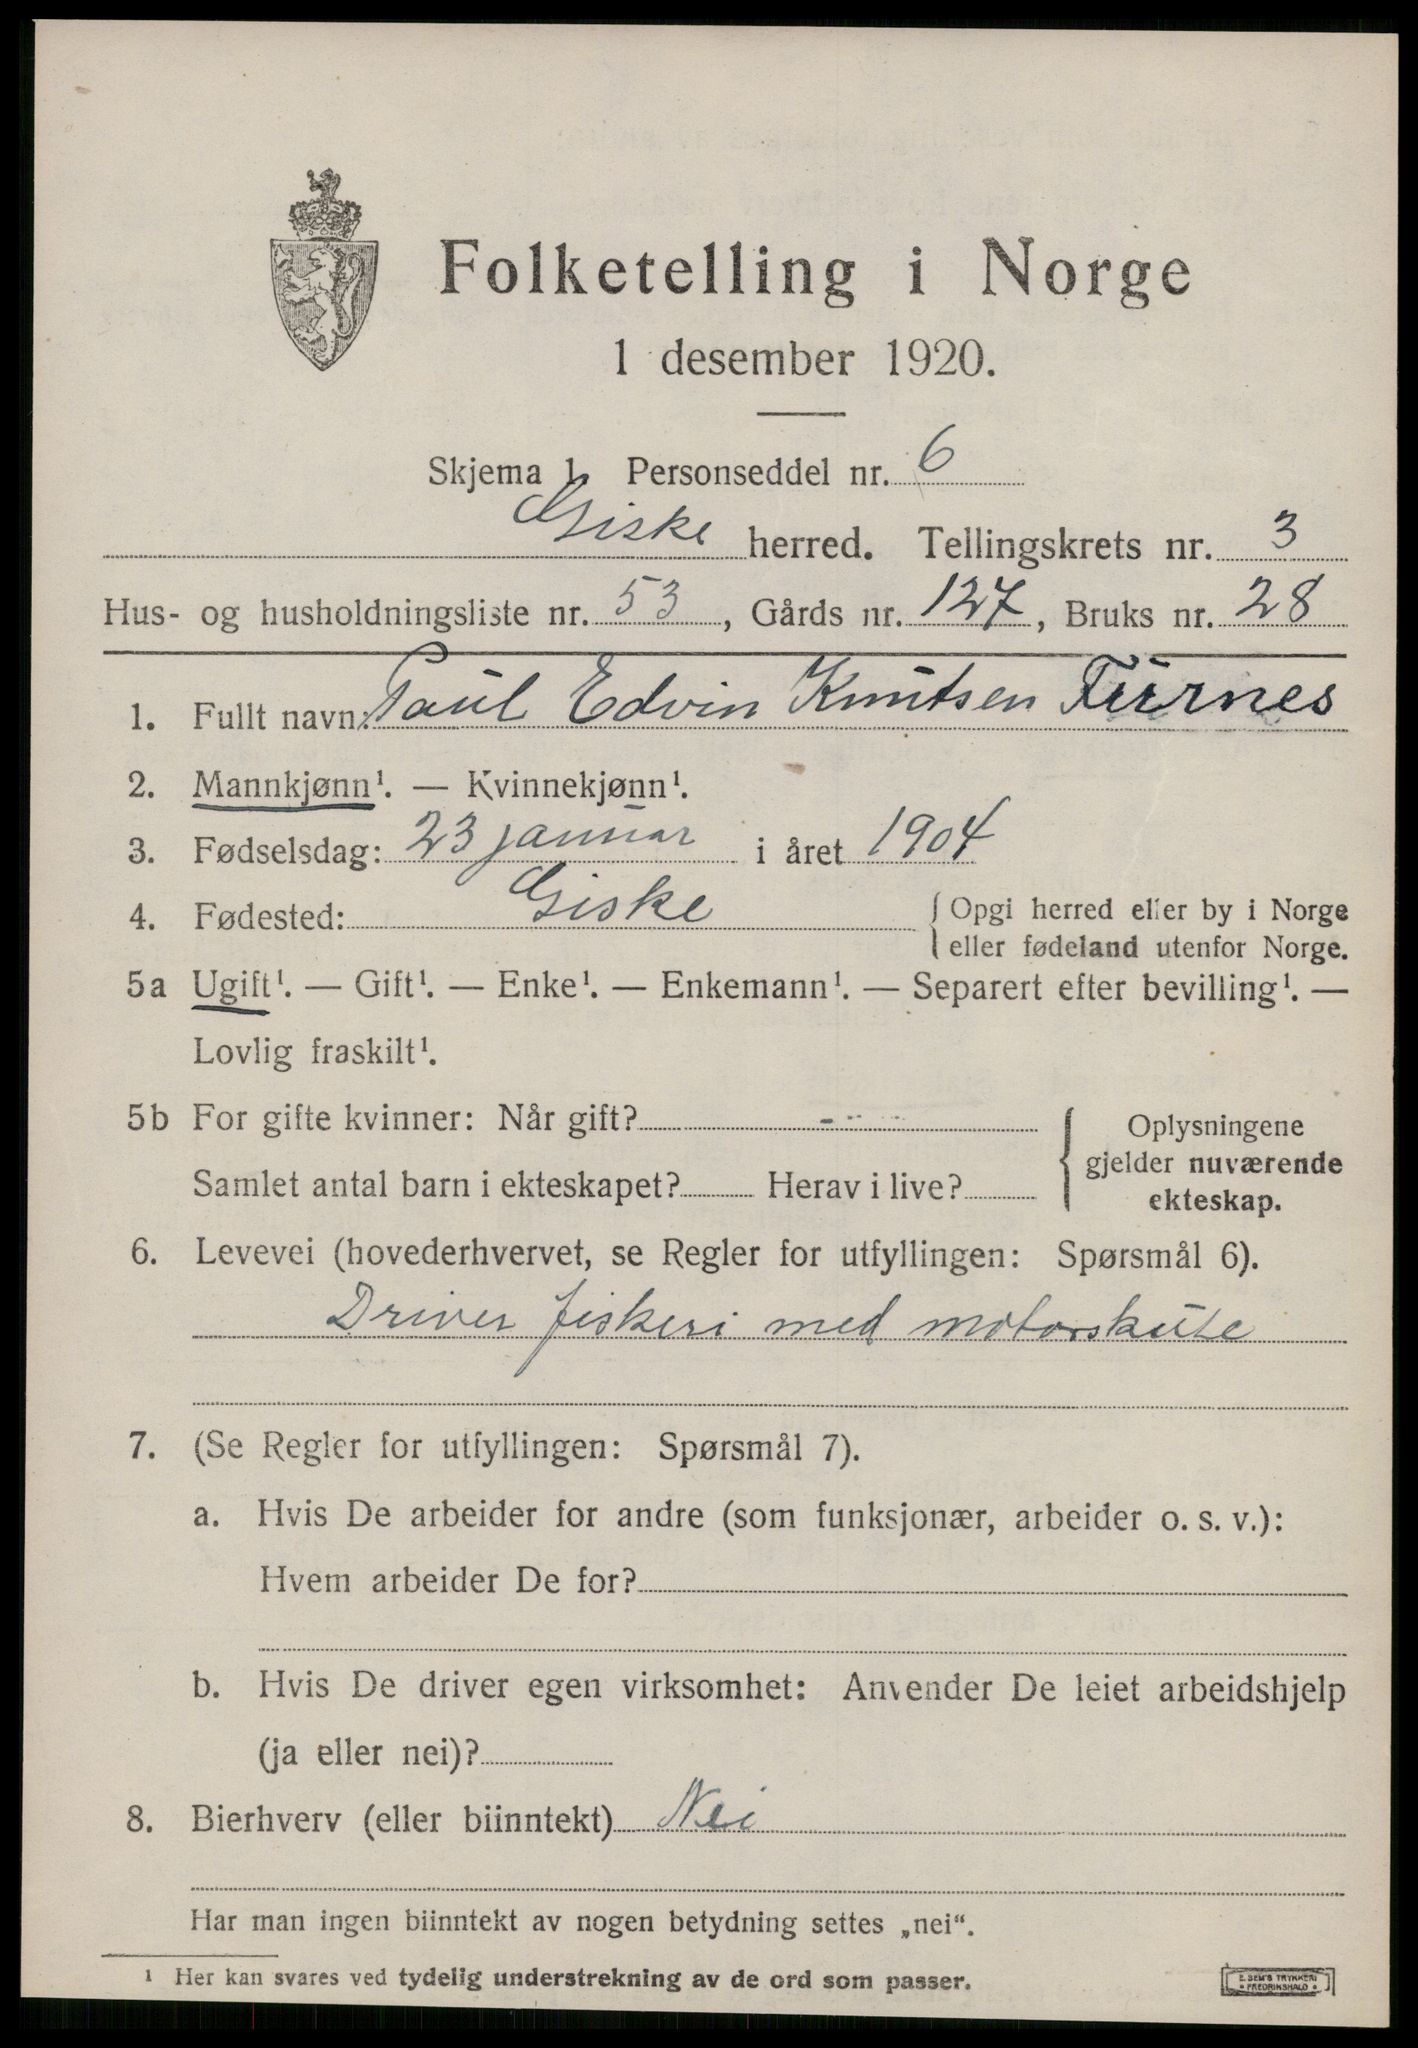 Folketelling i Norge
1 desember 1920.
Skjema 1. Personseddel nr. 6
Giske herred. Tellingskrets nr. 3
Hus- og husholdningsliste nr. 53, Gårds nr. 127, Bruks nr. 28
1. Fullt navn: Paul Edvin Knutsen Furnes
2. Mannkjønn¹. — Kvinnekjønn¹.
3. Fødselsdag: 23 januar i året 1904
4. Fødested: Giske { Opgi herred eller by i Norge
eller fødeland utenfor Norge.
5a Ugift¹. — Gift¹. — Enke¹. — Enkemann¹. — Separert efter bevilling¹. —
Lovlig fraskilt¹.
5b For gifte kvinner: Når gift? { Oplysningene
gjelder nuværende
Samlet antal barn i ekteskapet? Herav i live?
ekteskap.
6. Levevei (hovederhvervet, se Regler for utfyllingen: Spørsmål 6).
Driver fiskeri med motorskute
7. (Se Regler for utfyllingen: Spørsmål 7).
a. Hvis De arbeider for andre (som funksjonær, arbeider o. s. v.):
Hvem arbeider De for?
b. Hvis De driver egen virksomhet: Anvender De leiet arbeidshjelp
(ja eller nei)?
8. Bierhverv (eller biinntekt) Nei
Har man ingen biinntekt av nogen betydning settes „nei“.
¹ Her kan svares ved tydelig understrekning av de ord som passer.
E. SEM'S TRYKKERI
• FREDRIKSHALD •